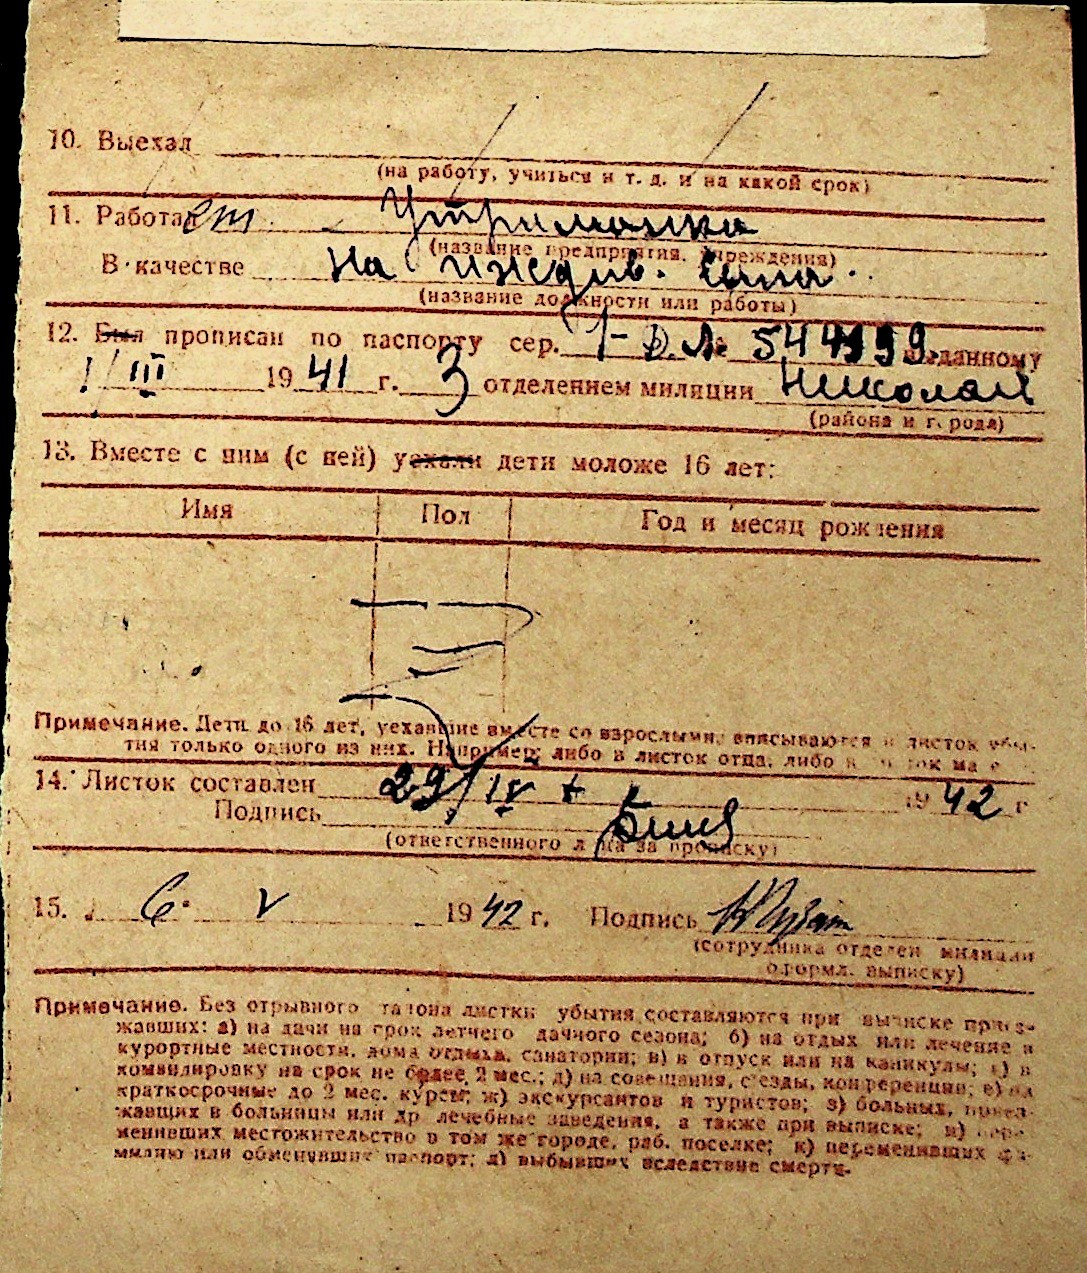 10. Выехал
(на работу, учиться и т. д. и на какой срок)
11. Работает Утриманка
(название предприятия, учреждения)
В качестве на иждив. сына.
(название должности или работы)
12. Был прописан по паспорту сер. выданному
1/III 1941 г. 3 отделением милиции Николаи
(района и города)
13. Вместе с ним (с ней) уехали дети моложе 16 лет:
Имя Пол Год и месяц рождения
Примечание. Дети до 16 лет, уехавшие вместе со взрослыми, вписываются в листок убы-
тия только одного из них. Например: либо в листок отца, либо в листок ма
14. Листок составлен 29/IV 1942 г
Подпись
(ответственного лица за прописку)
15. 6. V 1942 г. Подпись
(сотрудника отделен милиции
оформл. выписку)
Примечание. Без отрывного талона листки убытия составляются при выписке приез-
жавших: а) на дачи на срок летнего дачного сезона; б) на отдых или лечение в
курортные местности, дома отдыха, санатории; в) в отпуск или на каникулы; г) в
командировку на срок не более 2 мес.; д) на совещания, с'езды, конференции; е) на
краткосрочные до 2 мес. курсы; ж) экскурсантов и туристов; з) больных, приез-
жавших в больницы или др лечебные заведения, а также при выписке; и) пере-
менивших местожительство в том же городе, раб. поселке; к) переменивших фа-
милию или обменявших паспорт; л) выбывших вследствие смерти.